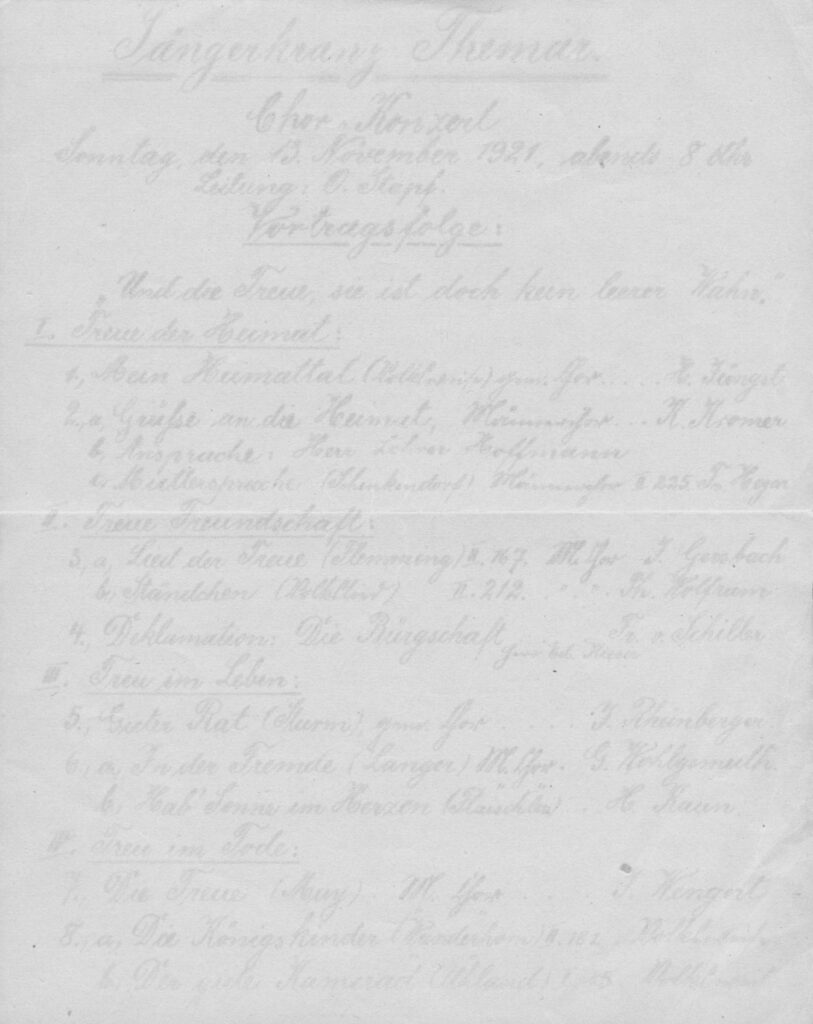 Sängerkranz Themar.
Chor-Konzert
Sonntag, den 13. November 1921, abends 8 Uhr
Leitung: O. Stapf.
Vortragsfolge:
„Und die Treue, sie ist doch kein leerer Wahn."
I. Treue der Heimat:
1., Mein Heimattal (Volksweise) gem. Chor .... H. Jüngst
2., a, Grüße an die Heimat, Männerchor .. K. Kromer
b, Ansprache: Herr Lehrer Hoffmann
c, Muttersprache (Schenkendorf) Männerchor II 225. Fr. Hegar
II. Treue Freundschaft:
3., a, Lied der Treue (Flemming) II. 167. M. Chor J. Gersbach
b, Ständchen (Volkslied) II. 212. " " Ph. Wolfrum
4., Deklamation: Die Bürgschaft Fr. v. Schiller
Herr
III. Treu im Leben:
5., Guter Rat (Sturm) gem. Chor . . . . J. Rheinberger
6., a, In der Fremde (Langer) M. Chor. G. Wohlgemuth
b, Hab' Sonne im Herzen (Fläischlen) .. H. Kaun
IV. Treu im Tode:
7., Die Treue (May) M. Chor . . . J. Wengert
8., a, Die Königskinder (Wunderhorn) II. 162 Volksweise
b, Der gute Kamerad (Uhland) Volksweise